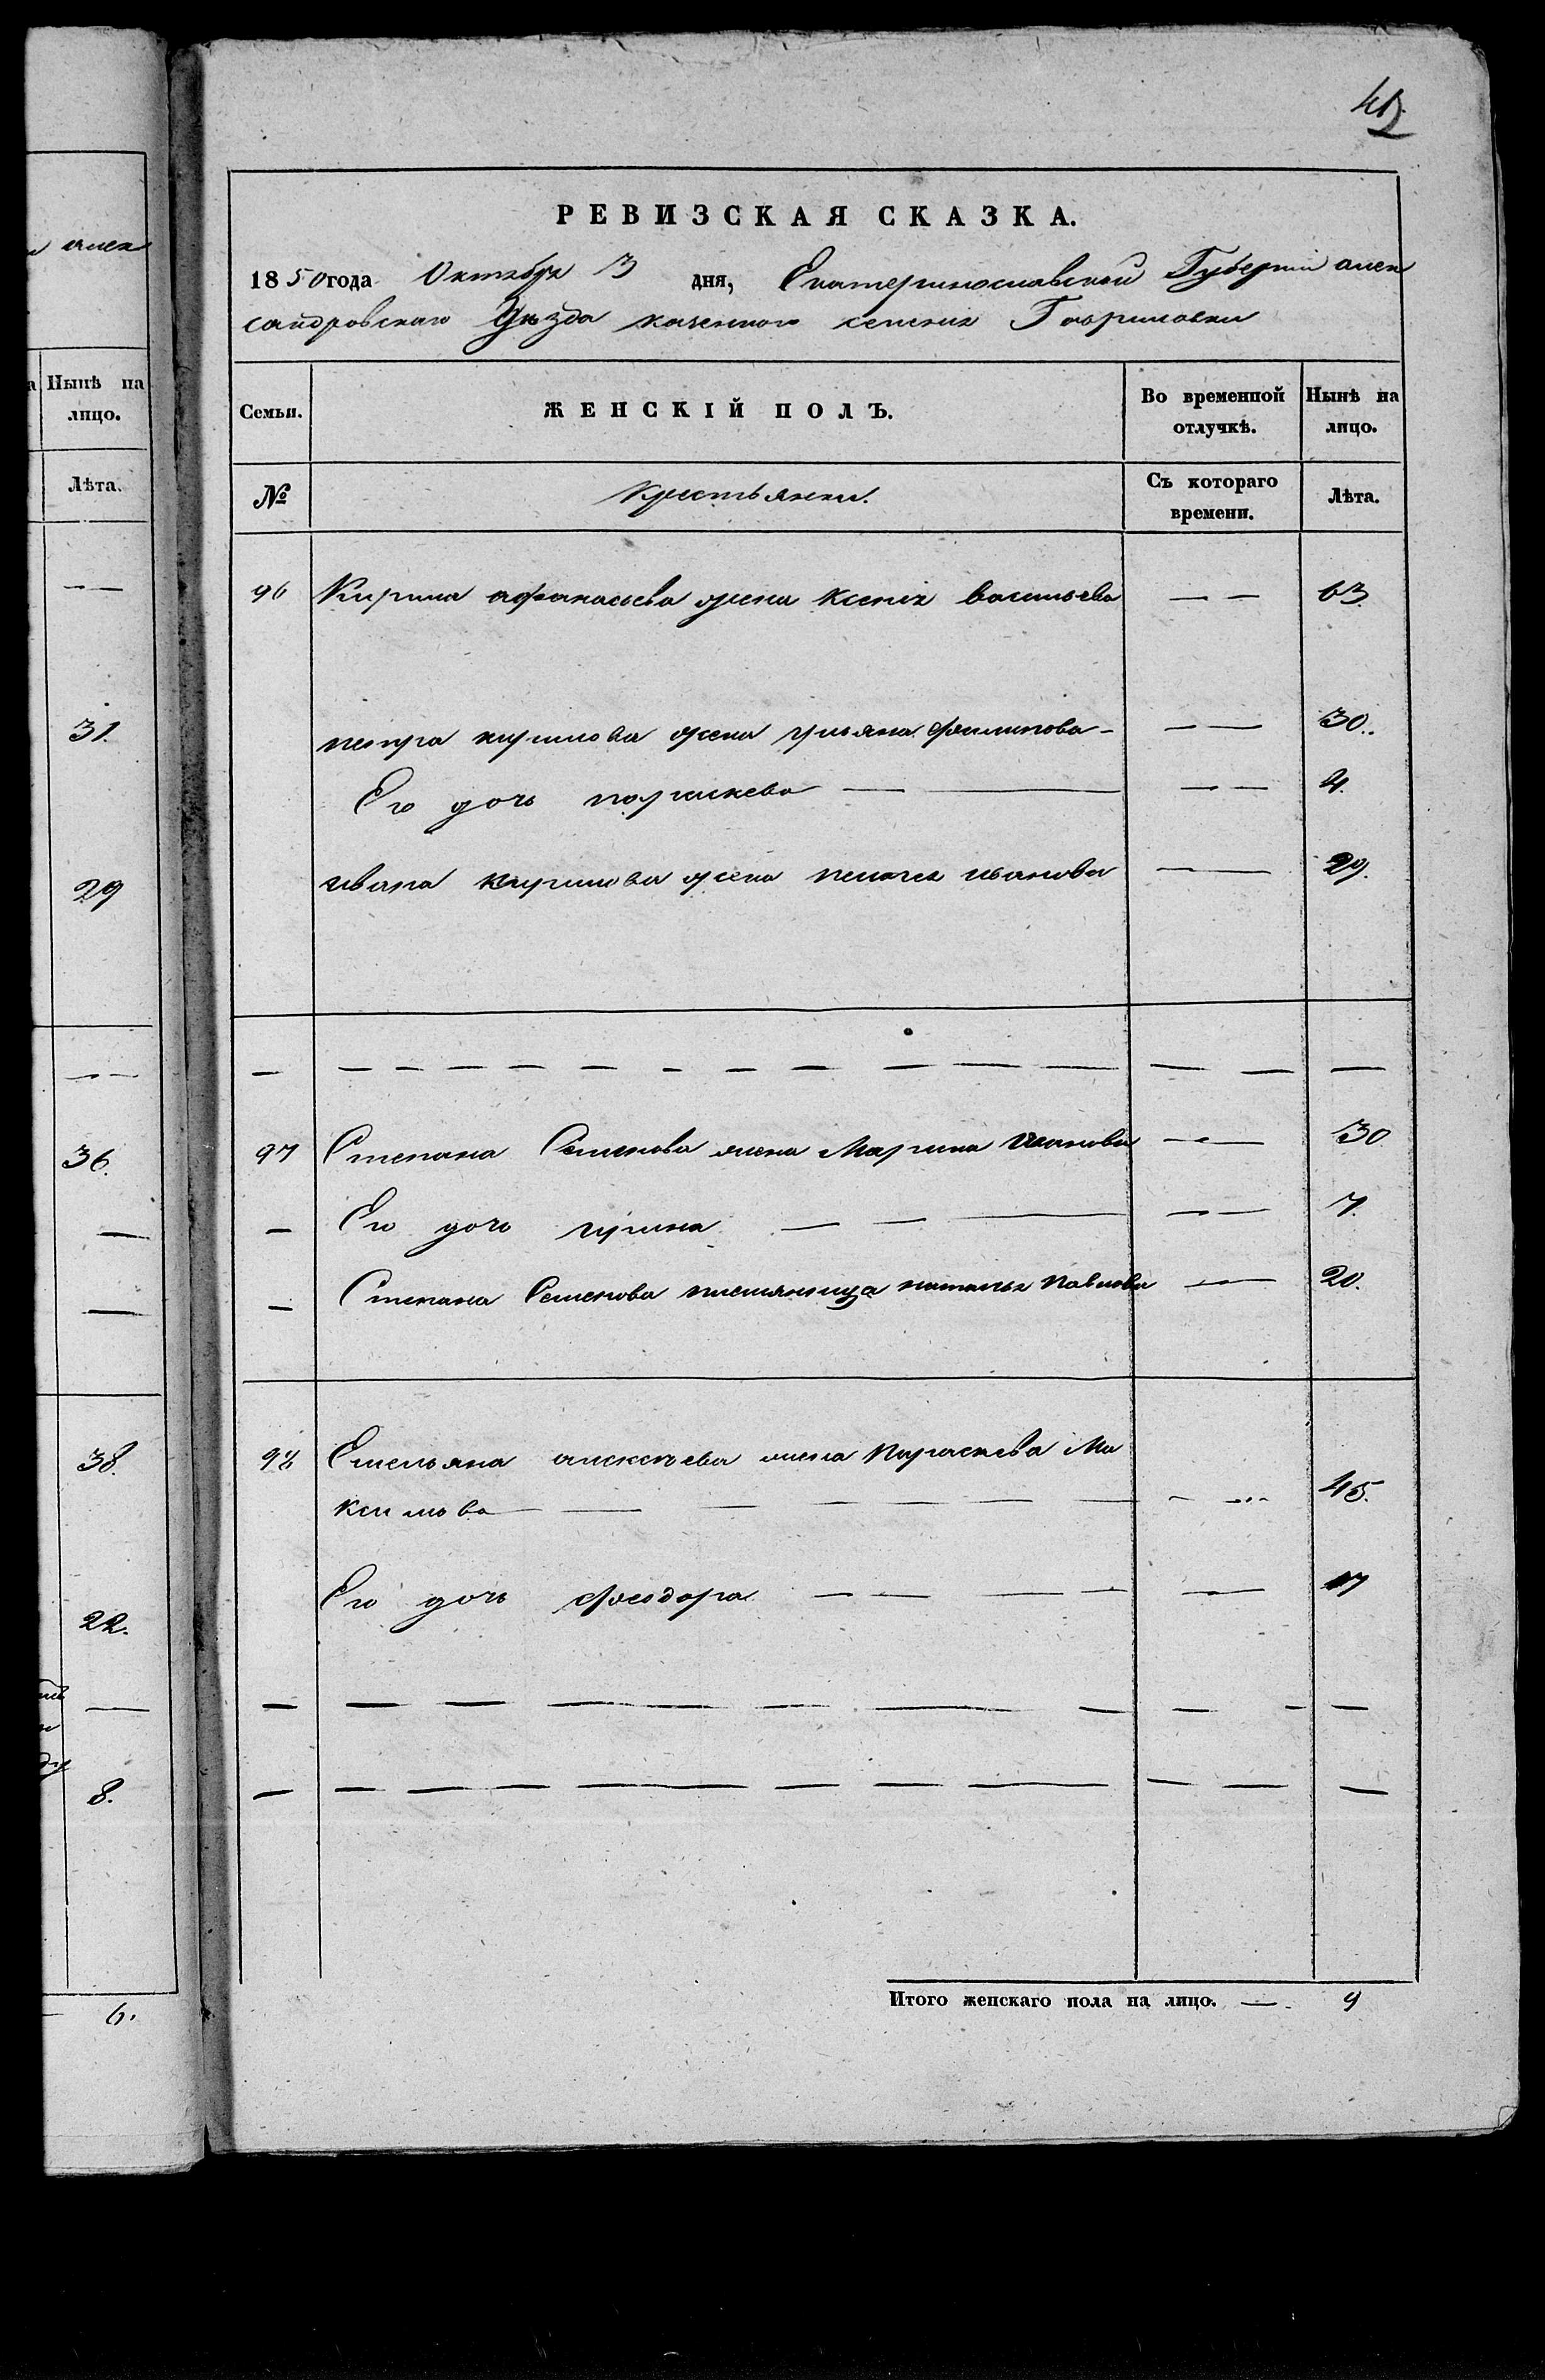 алек
Нынѣ на
лицо.
Лѣта.
31.
29
36.
38.
22.
8.
6.
РЕВИЗСКАЯ СКАЗКА.
1850 года Октября 3 дня, Екатеринославской Губерніи алек
сандровскаго Уѣзда казенного селенія Гавриловки
Семьи.
ЖЕНСКІЙ ПОЛЪ.
Во временной
отлучкѣ.
Нынѣ на
лицо.
№
Крестьянки.
Съ котораго
времени.
Лѣта.
96 Кирила афанасьева жена Ксенія васильева — — 63.
петра кирилова жена ульяна филипова — — — 30.
Его дочь параскева — — — — 4.
ивана кирилова жена пелагея иванова — — 29.
97 Степана Семенова жена Марина Иванова — — 30
— Его дочь ирина — — — — — 7.
— Степана Семенова племянница наталья павлова — — 20.
98 Емельяна алексеева жена параскева Ма
ксимова — — — — — — 45.
Его дочь феодора — — — — — 17
Итого женскаго пола на лицо. — 9